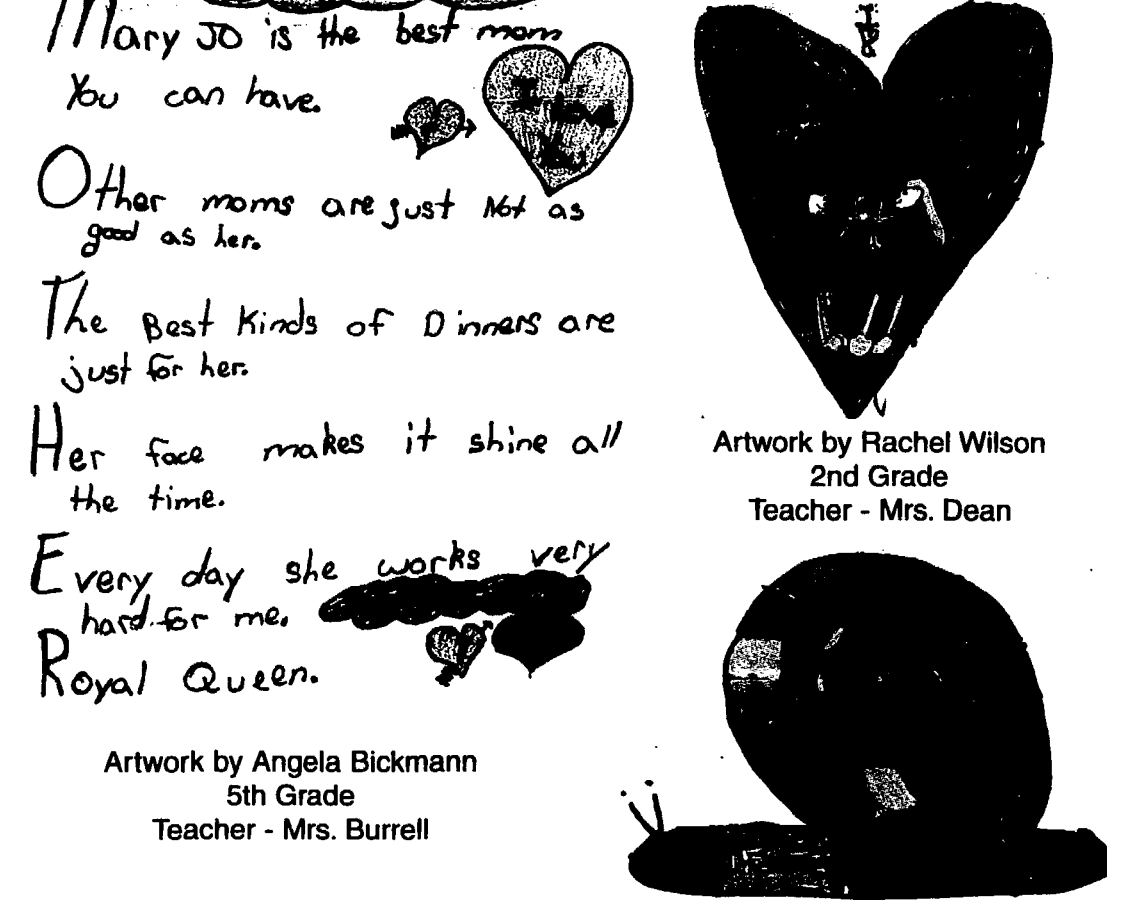 Mary JO is the best mom
You can have.
I love
You
Other moms are just Not as
good as her.
The Best Kinds of Dinners are
just for her.
Her face makes it shine all
the time.
Every day she works very
hard for me.
Royal Queen.
Artwork by Angela Bickmann
5th Grade
Teacher - Mrs. Burrell
Artwork by Rachel Wilson
2nd Grade
Teacher - Mrs. Dean